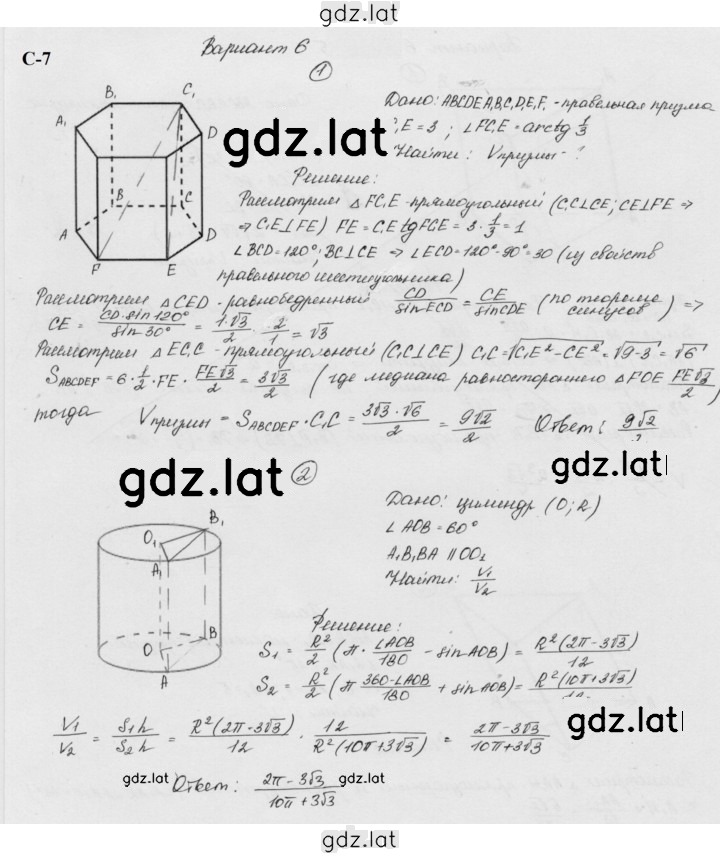 gdz.lat
С-7
Вариант 6
①
B₁ C₁
A₁ D₁
B C
A D
F E
gdz.lat
Дано: ABCDEA₁B₁C₁D₁E₁F₁ - правельная призма
C₁E = 3 ; ∠FC₁E = arctg 1/3
Найти: Vпризмы - ?
Решение:
Рассмотрим △FC₁E - прямоугольный (C₁C⊥CE; CE⊥FE ⇒
⇒ C₁E⊥FE) FE = C₁E tgFCE = 3 · 1/3 = 1
∠BCD = 120°; BC⊥CE ⇒ ∠ECD = 120° - 90° = 30 (из свойств
правельного шестиугольника)
Рассмотрим △CED - равнобедренный CD/sinECD = CE/sinCDE (по теореме синусов) ⇒
CE = CD·sin120°/sin30° = 1·√3/2 · 2/1 = √3
Рассмотрим △EC₁C - прямоугольный (C₁C⊥CE) C₁C = √(C₁E² - CE²) = √(9-3) = √6
SABCDEF = 6 · 1/2 · FE · FE√3/2 = 3√3/2 (где медиана равностороннего △FOE FE√3/2)
тогда Vпризмы = SABCDEF · C₁C = 3√3 · √6/2 = 9√2/2 Ответ: 9√2/2
gdz.lat
②
B₁
O₁
A₁
B
O
A
Дано: цилиндр (O; R)
∠AOB = 60°
A₁B₁BA ∥ OO₁
Найти: V₁/V₂
Решение:
S₁ = R²/2 (π · ∠AOB/180 - sinAOB) = R²(2π - 3√3)/12
S₂ = R²/2 (π 360-∠AOB/180 + sinAOB) = R²(10π + 3√3)/12
V₁/V₂ = S₁h/S₂h = R²(2π - 3√3)/12 · 12/R²(10π + 3√3) = 2π - 3√3/10π + 3√3
gdz.lat
gdz.lat
Ответ: 2π - 3√3/10π + 3√3
gdz.lat
gdz.lat